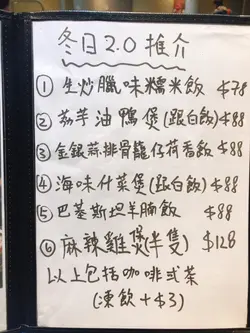 冬日2.0推介
① 生炒臘味糯米飯 $78
② 荔芋油鴨煲(跟白飯)$88
③ 金銀蒜排骨籠仔荷香飯 $88
④ 海味什菜煲(跟白飯) $88
⑤ 巴基斯坦羊腩飯 $88
⑥ 麻辣雞煲(半隻) $128
以上包括咖啡或茶
(凍飲+$3)